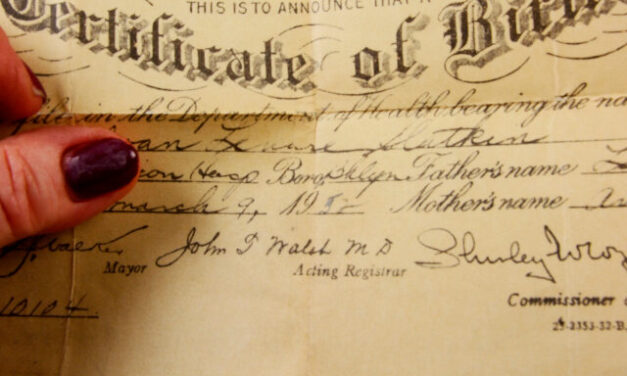 THIS IS TO ANNOUNCE THAT A
Certificate of Birth
file in the Department of Health bearing the na
Slutkin
ion Hosp Boro Bklyn Father's name
March 9, 19 Mother's name
J Walker John T Walsh M D Shirley W
Mayor Acting Registrar
Commissioner
10104
23-2353-32-B